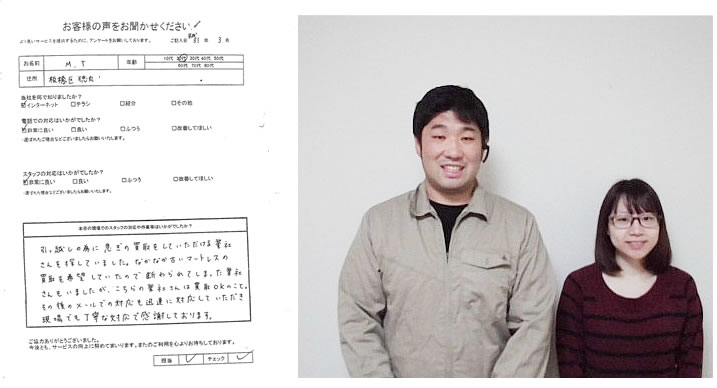 お客様の声をお聞かせください
より良いサービスを提供するために、アンケートをお願いしております。 ご記入日 31 年 3 月
お名前 M.T 年齢 10代 20代 30代 40代 50代
60代 70代 80代
住所 板橋区
当社を何で知りましたか?
☑インターネット □チラシ □紹介 □その他
電話での対応はいかがでしたか?
☑非常に良い □良い □ふつう □改善してほしい
スタッフの対応はいかがでしたか?
☑非常に良い □良い □ふつう □改善してほしい
本日の現場でのスタッフの対応や作業等はいかがでしたか?
引っ越しの為に急ぎの買取をしていただける業社
さんを探していました。なかなか古いマットレスの
買取を希望していたので断わられてしまった業社
さんもいましたが、こちらの業社さんは買取OKのこと。
その後のメールでの対応も迅速に対応していただき
現場でも丁寧な対応で感謝しております。
ご協力ありがとうございました。
今後とも、サービスの向上に努めてまいります。またのご利用を心よりお待ちしております。
担当 チェック